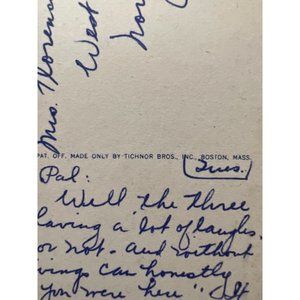 Mrs. Florence
West
PAT. OFF. MADE ONLY BY TICHNOR BROS., INC., BOSTON, MASS.
Tues.
Pal:
Well the three
having a lot of laughs.
or not. and without
can honestly
you were here"